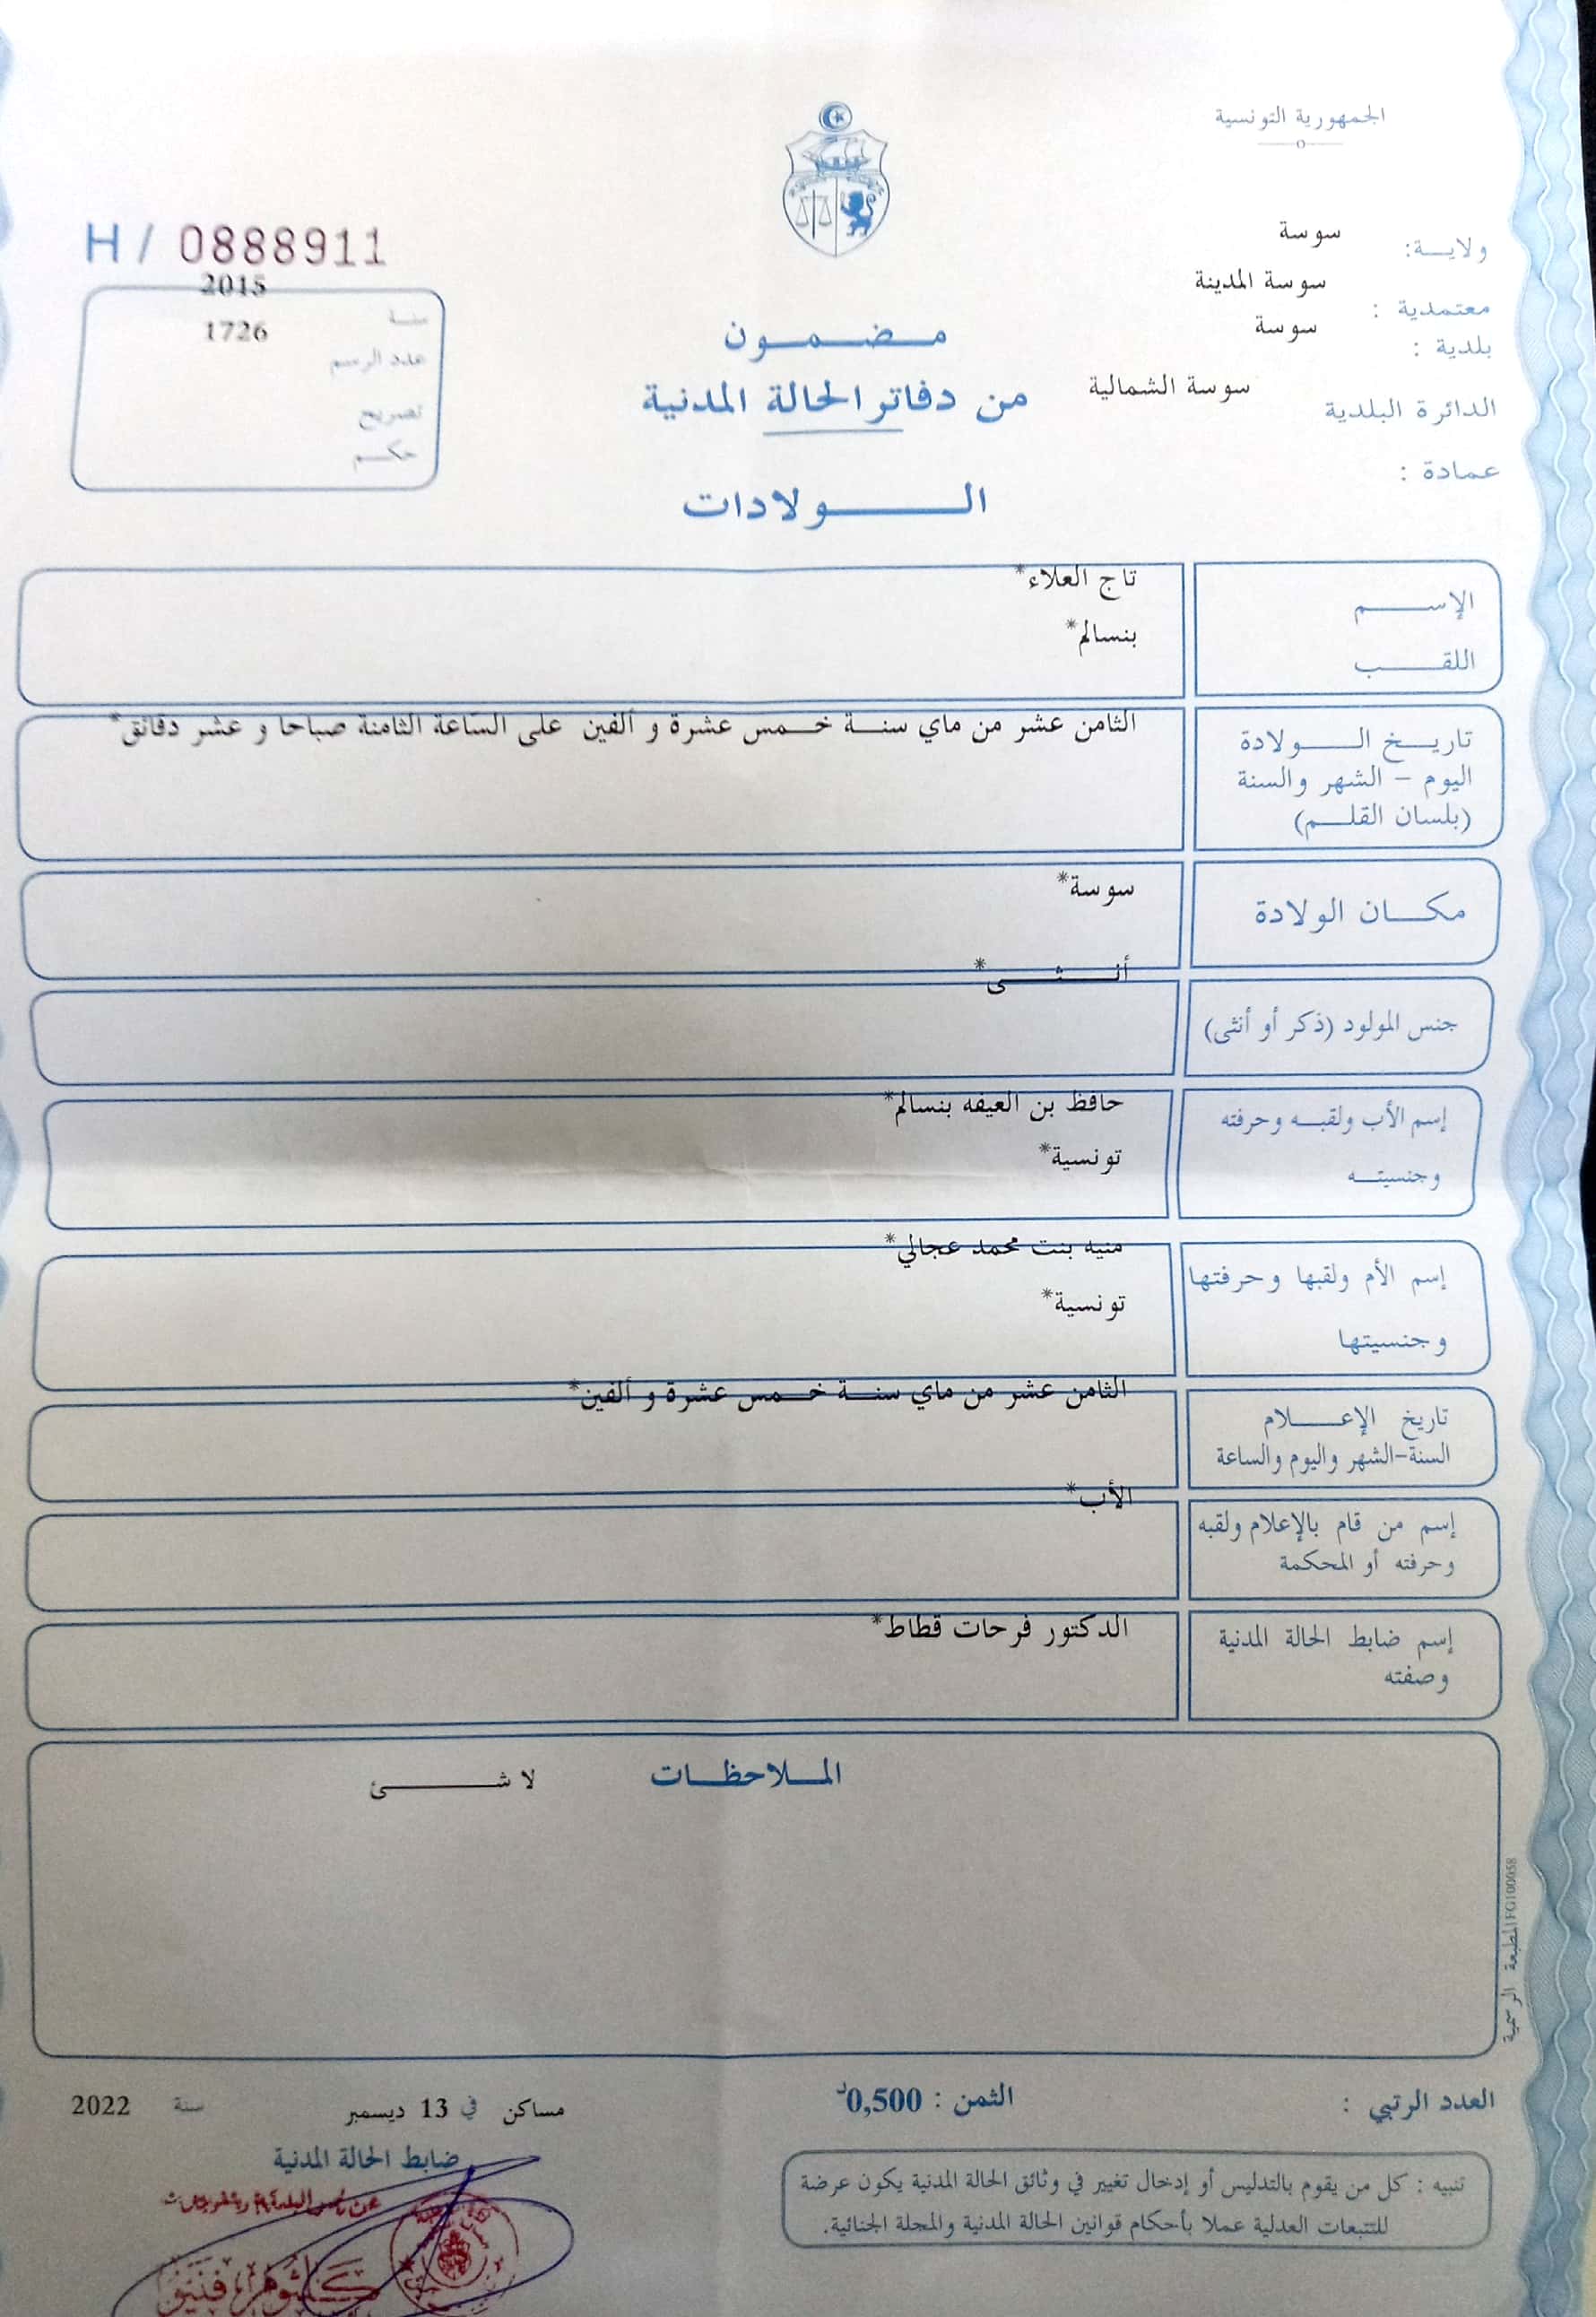 الجمهورية التونسية
ولايـــة: سوسة
معتمدية : سوسة المدينة
بلدية : سوسة
الدائرة البلدية سوسة الشمالية
عمادة :
H / 0888911
سنة 2015
عدد الرسم 1726
تصريح
حكم
مضمون
من دفاتر الحالة المدنية
الولادات
الإسم تاج العلاء*
اللقب بنسالم*
تاريخ الولادة الثامن عشر من ماي سنة خمس عشرة و ألفين على الساعة الثامنة صباحا و عشر دقائق*
اليوم - الشهر والسنة
(بلسان القلم)
مكان الولادة سوسة*
جنس المولود (ذكر أو أنثى) أنثى*
إسم الأب ولقبه وحرفته حافظ بن العيفه بنسالم*
وجنسيته تونسية*
إسم الأم ولقبها وحرفتها منيه بنت محمد عجالي*
وجنسيتها تونسية*
تاريخ الإعلام الثامن عشر من ماي سنة خمس عشرة و ألفين*
السنة-الشهر واليوم والساعة
إسم من قام بالإعلام ولقبه الأب*
وحرفته أو المحكمة
إسم ضابط الحالة المدنية الدكتور فرحات قطاط*
وصفته
الملاحظات لا شئ
المطبعة الرسمية FG100058
العدد الرتبي :
الثمن : 0,500د
مساكن في 13 ديسمبر سنة 2022
ضابط الحالة المدنية
تنبيه : كل من يقوم بالتدليس أو إدخال تغيير في وثائق الحالة المدنية يكون عرضة
للتتبعات العدلية عملا بأحكام قوانين الحالة المدنية والمجلة الجنائية.